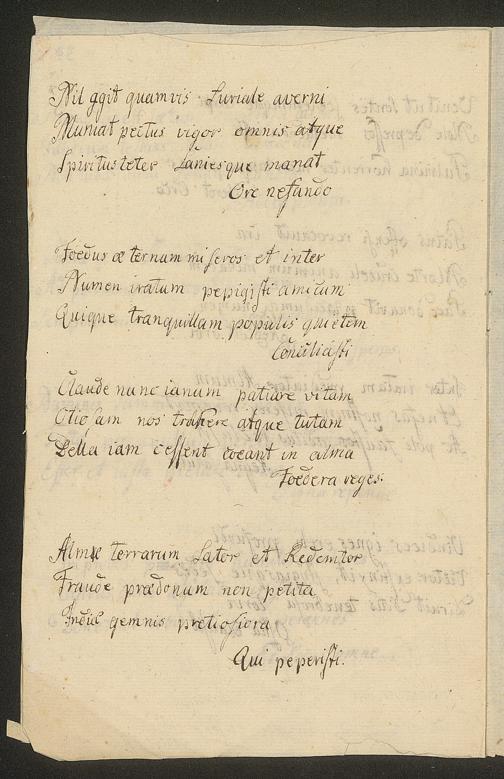 Nil ggit quamvis Furiale averni
Muniat pectus vigor omnis atque
Spiritus teter Saniesque manat
Ore nefando
Foedus æternum miseros et inter
Numen iratum pepigisti amicum
Quique tranquillam populis quietem
Conciliasti
Claude nunc ianum patiare vitam
Otiosam nos trahere atque tutam
Bella iam cessent coeant in alma
Foedera reges.
Almæ terrarum Sator et Redemtor
Fraude prædonum non petita
gemnis pretiosiora
Qui peperisti.